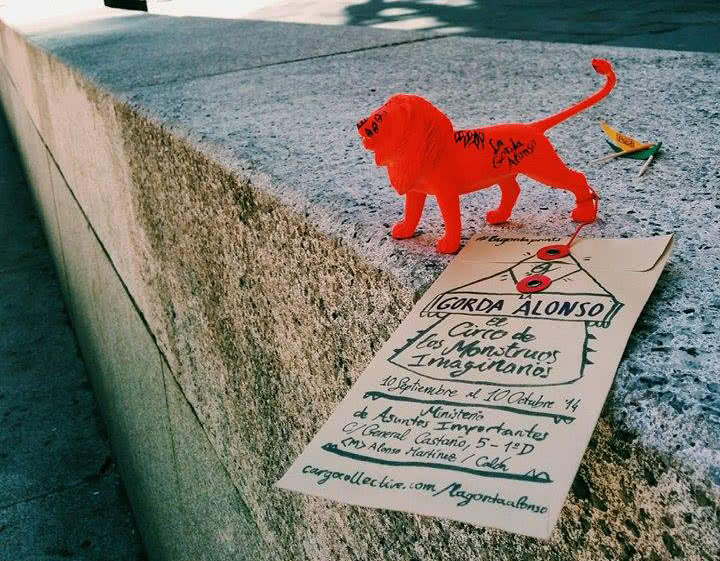 La
Gorda
Alonso
LA
GORDA ALONSO
El
Circo de
los Monstruos
Imaginarios
10 Septiembre al 10 Octubre 14
Ministerio
de Asuntos Importantes
C/ General Castaño, 5 - 1ºD
<M> Alonso Martinez / Colón
cargocollective.com/lagordaalonso